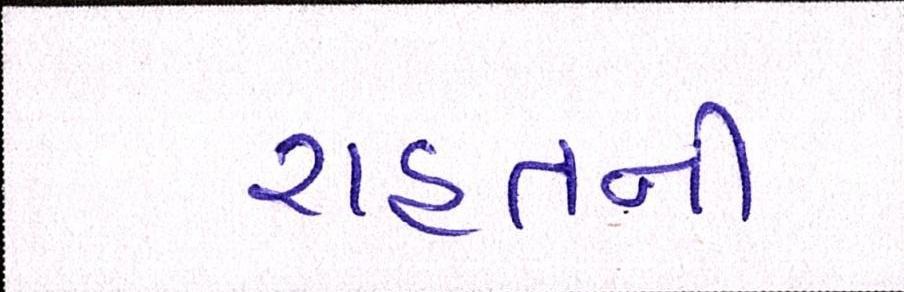 રાહતની